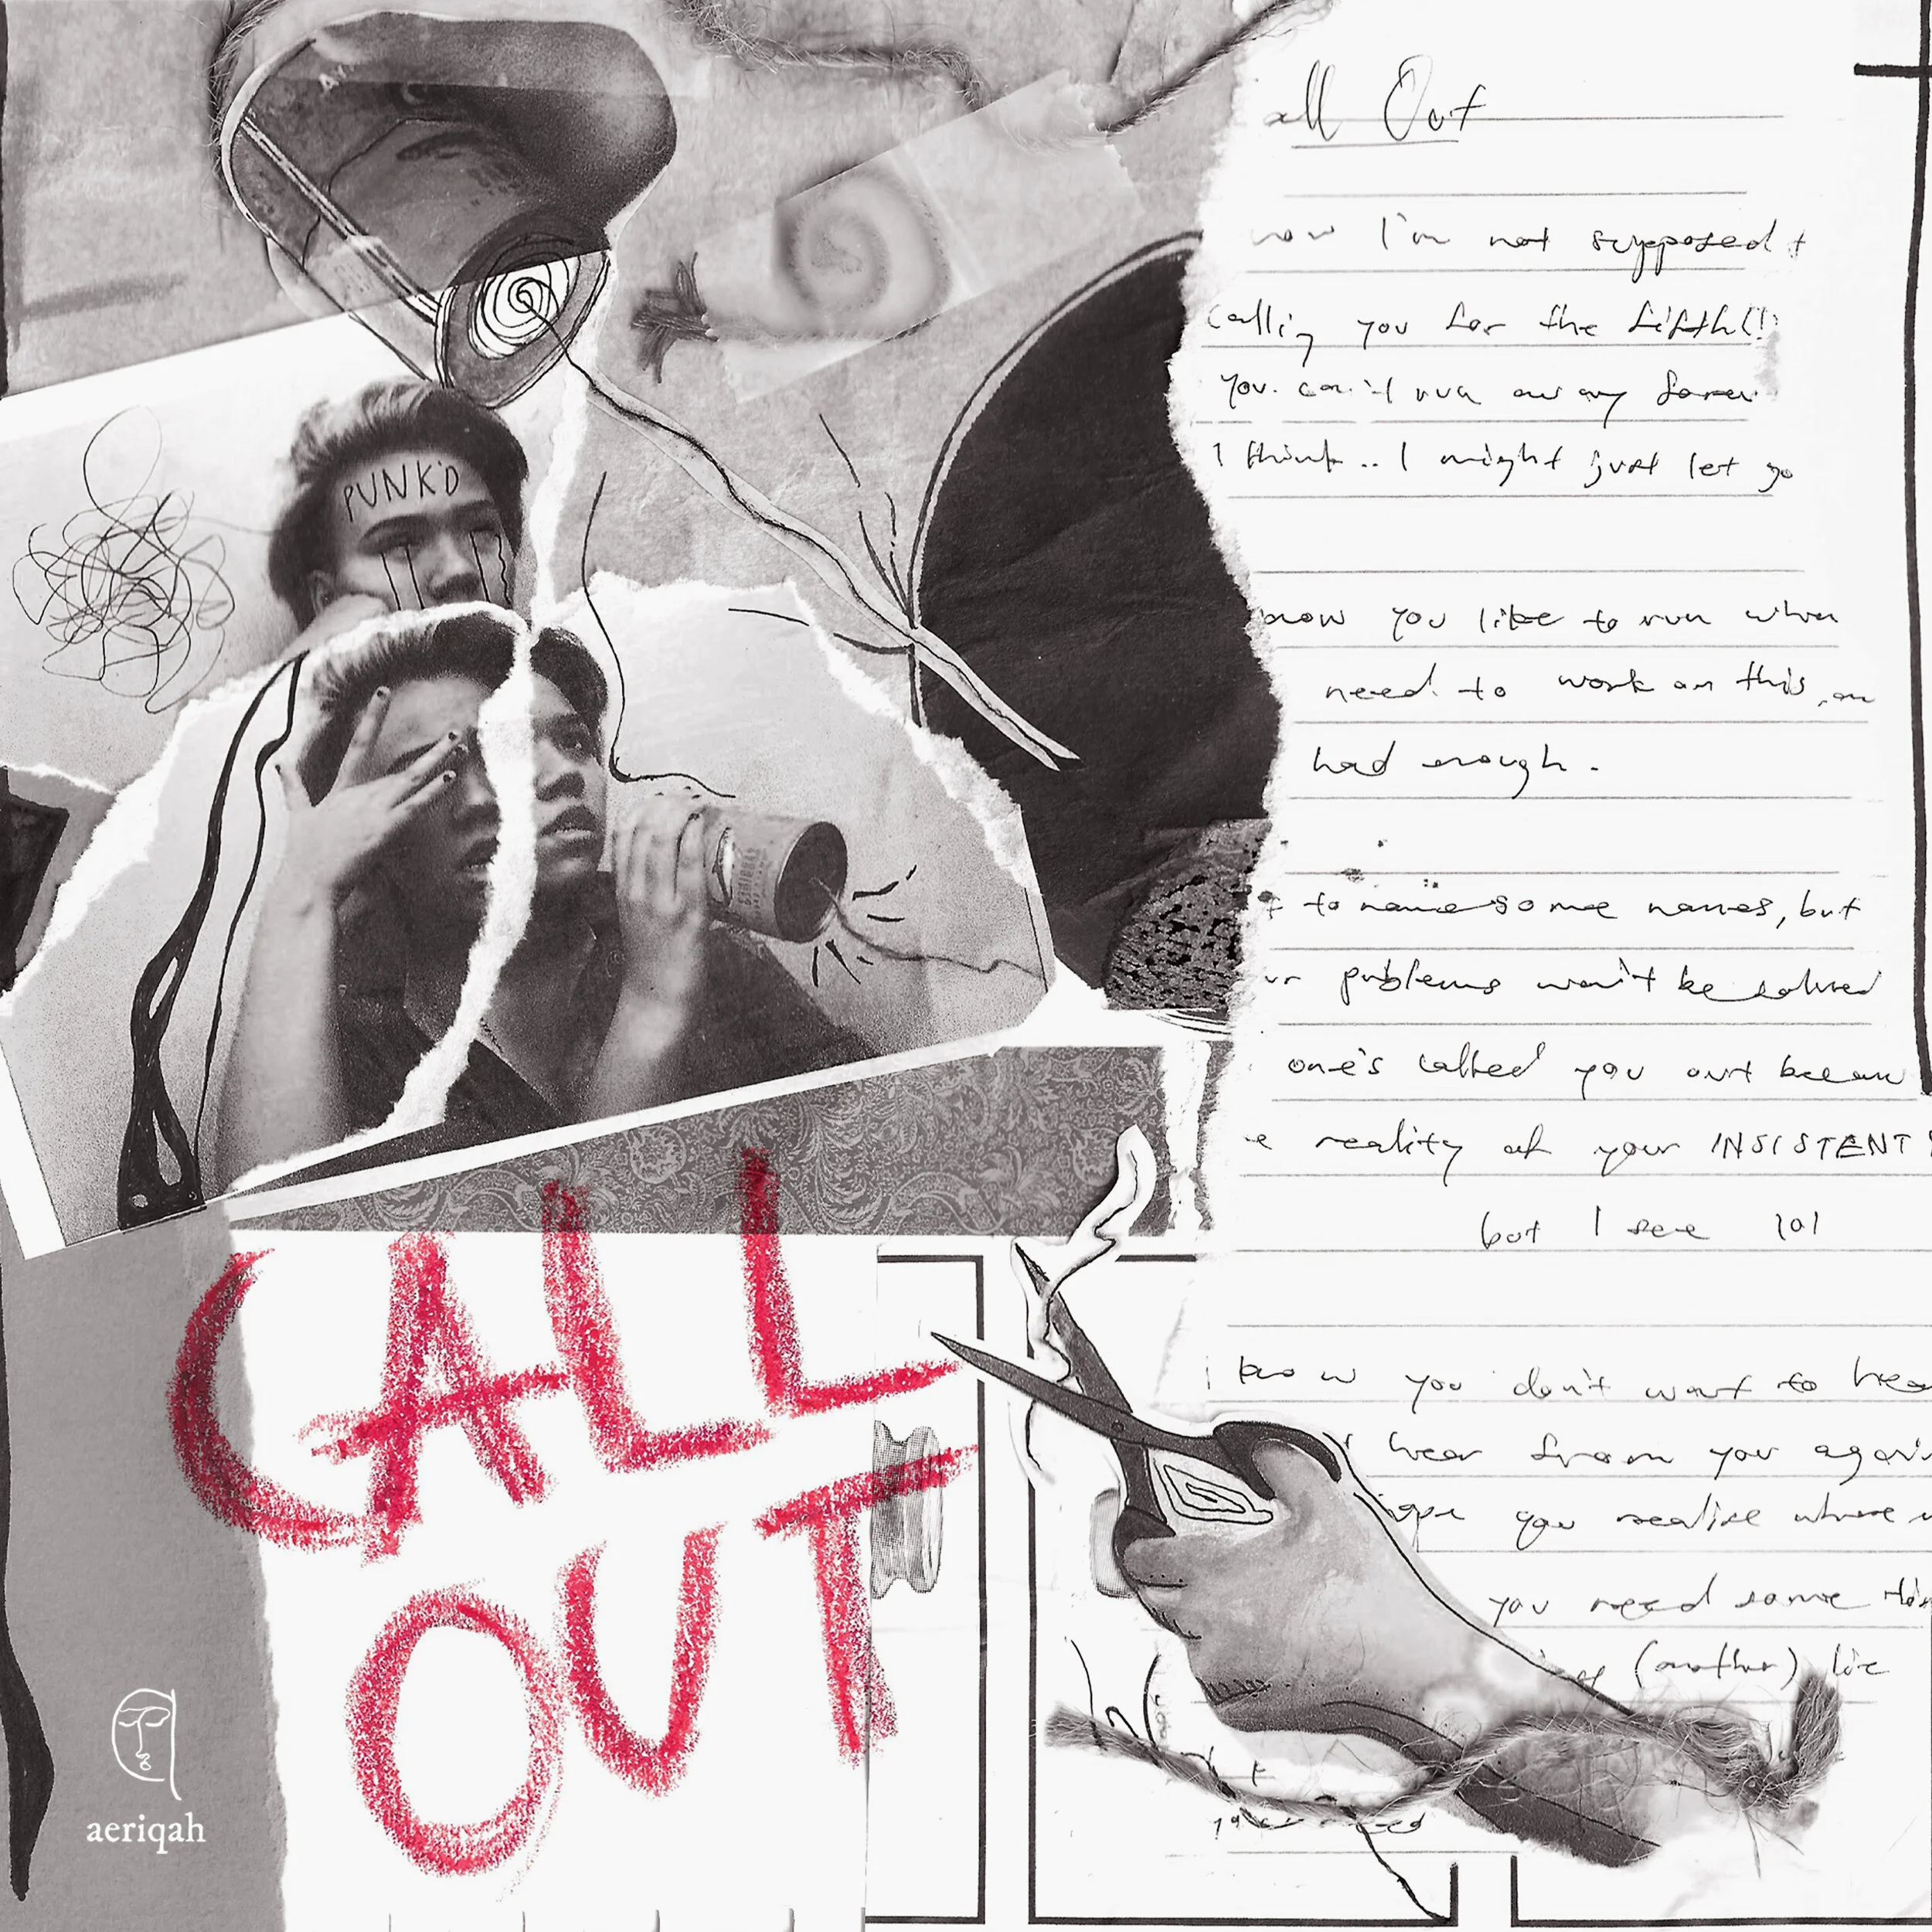 PUNK'D
CALL
OUT
aeriqah
all Out
now I'm not supposed t
Calling you for the fifth(!)
You can't run away forev
I think.. I might just let go
now you like to run when
need to work on this, an
had enough.
t to name some names, but
ur problems won't be solved
one's called you out becau
e reality of your INSISTENT
but I see lol
I know you don't want to hea
hear from you again
ope you realise where
you need some
(another) lie